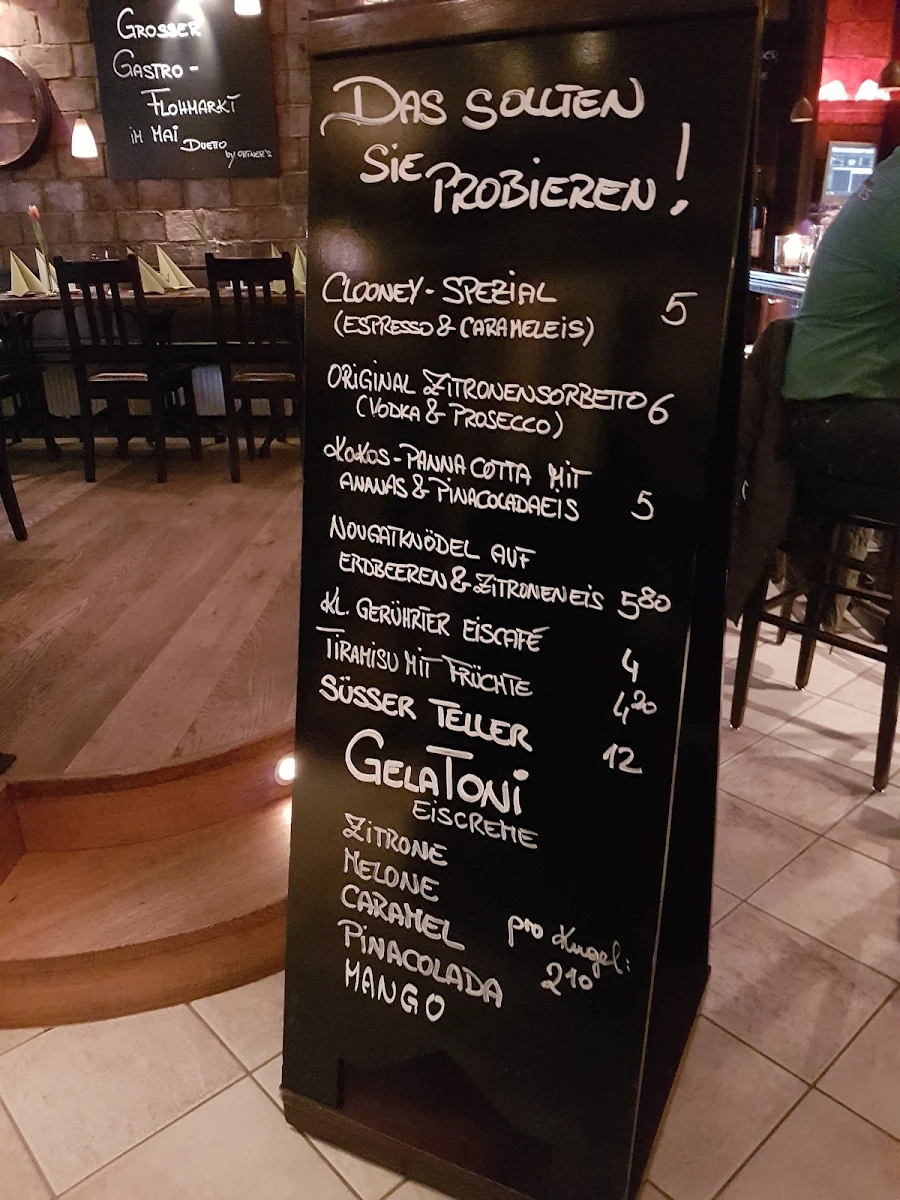 GROSSER
GASTRO-
FLOHMARKT
iM MAi
DUETTO
by ORTNER'S
DAS SOLLTEN
SiE PROBiEREN!
CLOONEY-SPEZiAL 5
(ESPRESSO & CARAMELEiS)
ORiGiNAL ZiTRONENSORBETTO 6
(VODKA & PROSECCO)
KOKOS-PANNA COTTA MiT
ANANAS & PiNACOLADAEiS 5
NOUGATKNÖDEL AUF
ERDBEEREN & ZiTRONENEiS 580
KL. GERÜHRTER EiSCAFÉ 4
TiRAMiSU MiT FRÜCHTE 420
SÜSSER TELLER 12
GELATONi
EiSCREME
ZiTRONE
MELONE
CARAMEL pro Kugel:
PiNACOLADA 210
MANGO